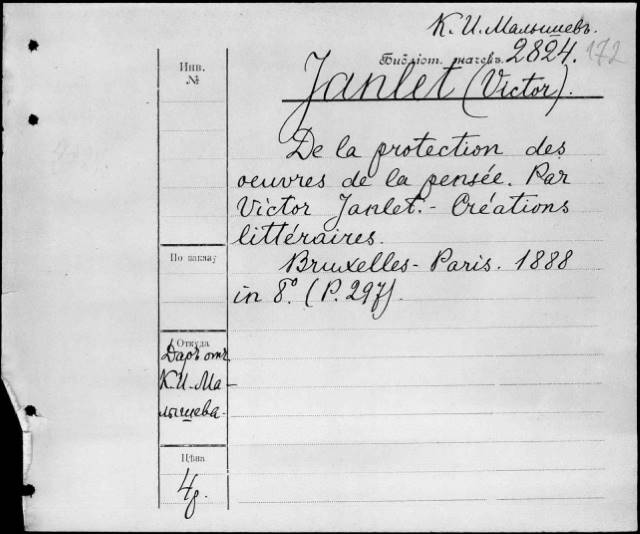 К. И. Малышевъ.
Библіот. значекъ. 2824. 172
Инв.
№
Janlet (Victor).
De la protection des
oeuvres de la pensée. Par
Victor Janlet. - Créations
littéraires.
По заказу
Bruxelles - Paris. 1888
in 8º. (P. 297).
Откуда
Даръ отъ
К. И. Ма-
лышева.
Цѣна
4